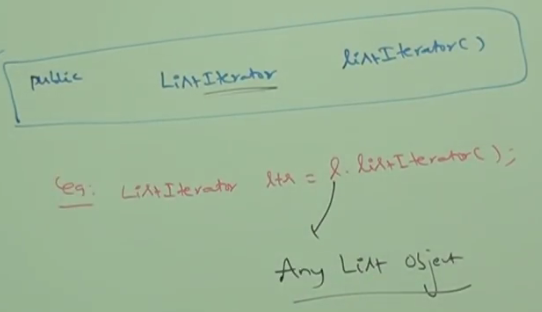 public ListIterator listIterator()
eg: ListIterator ltr = l.listIterator();
Any List object